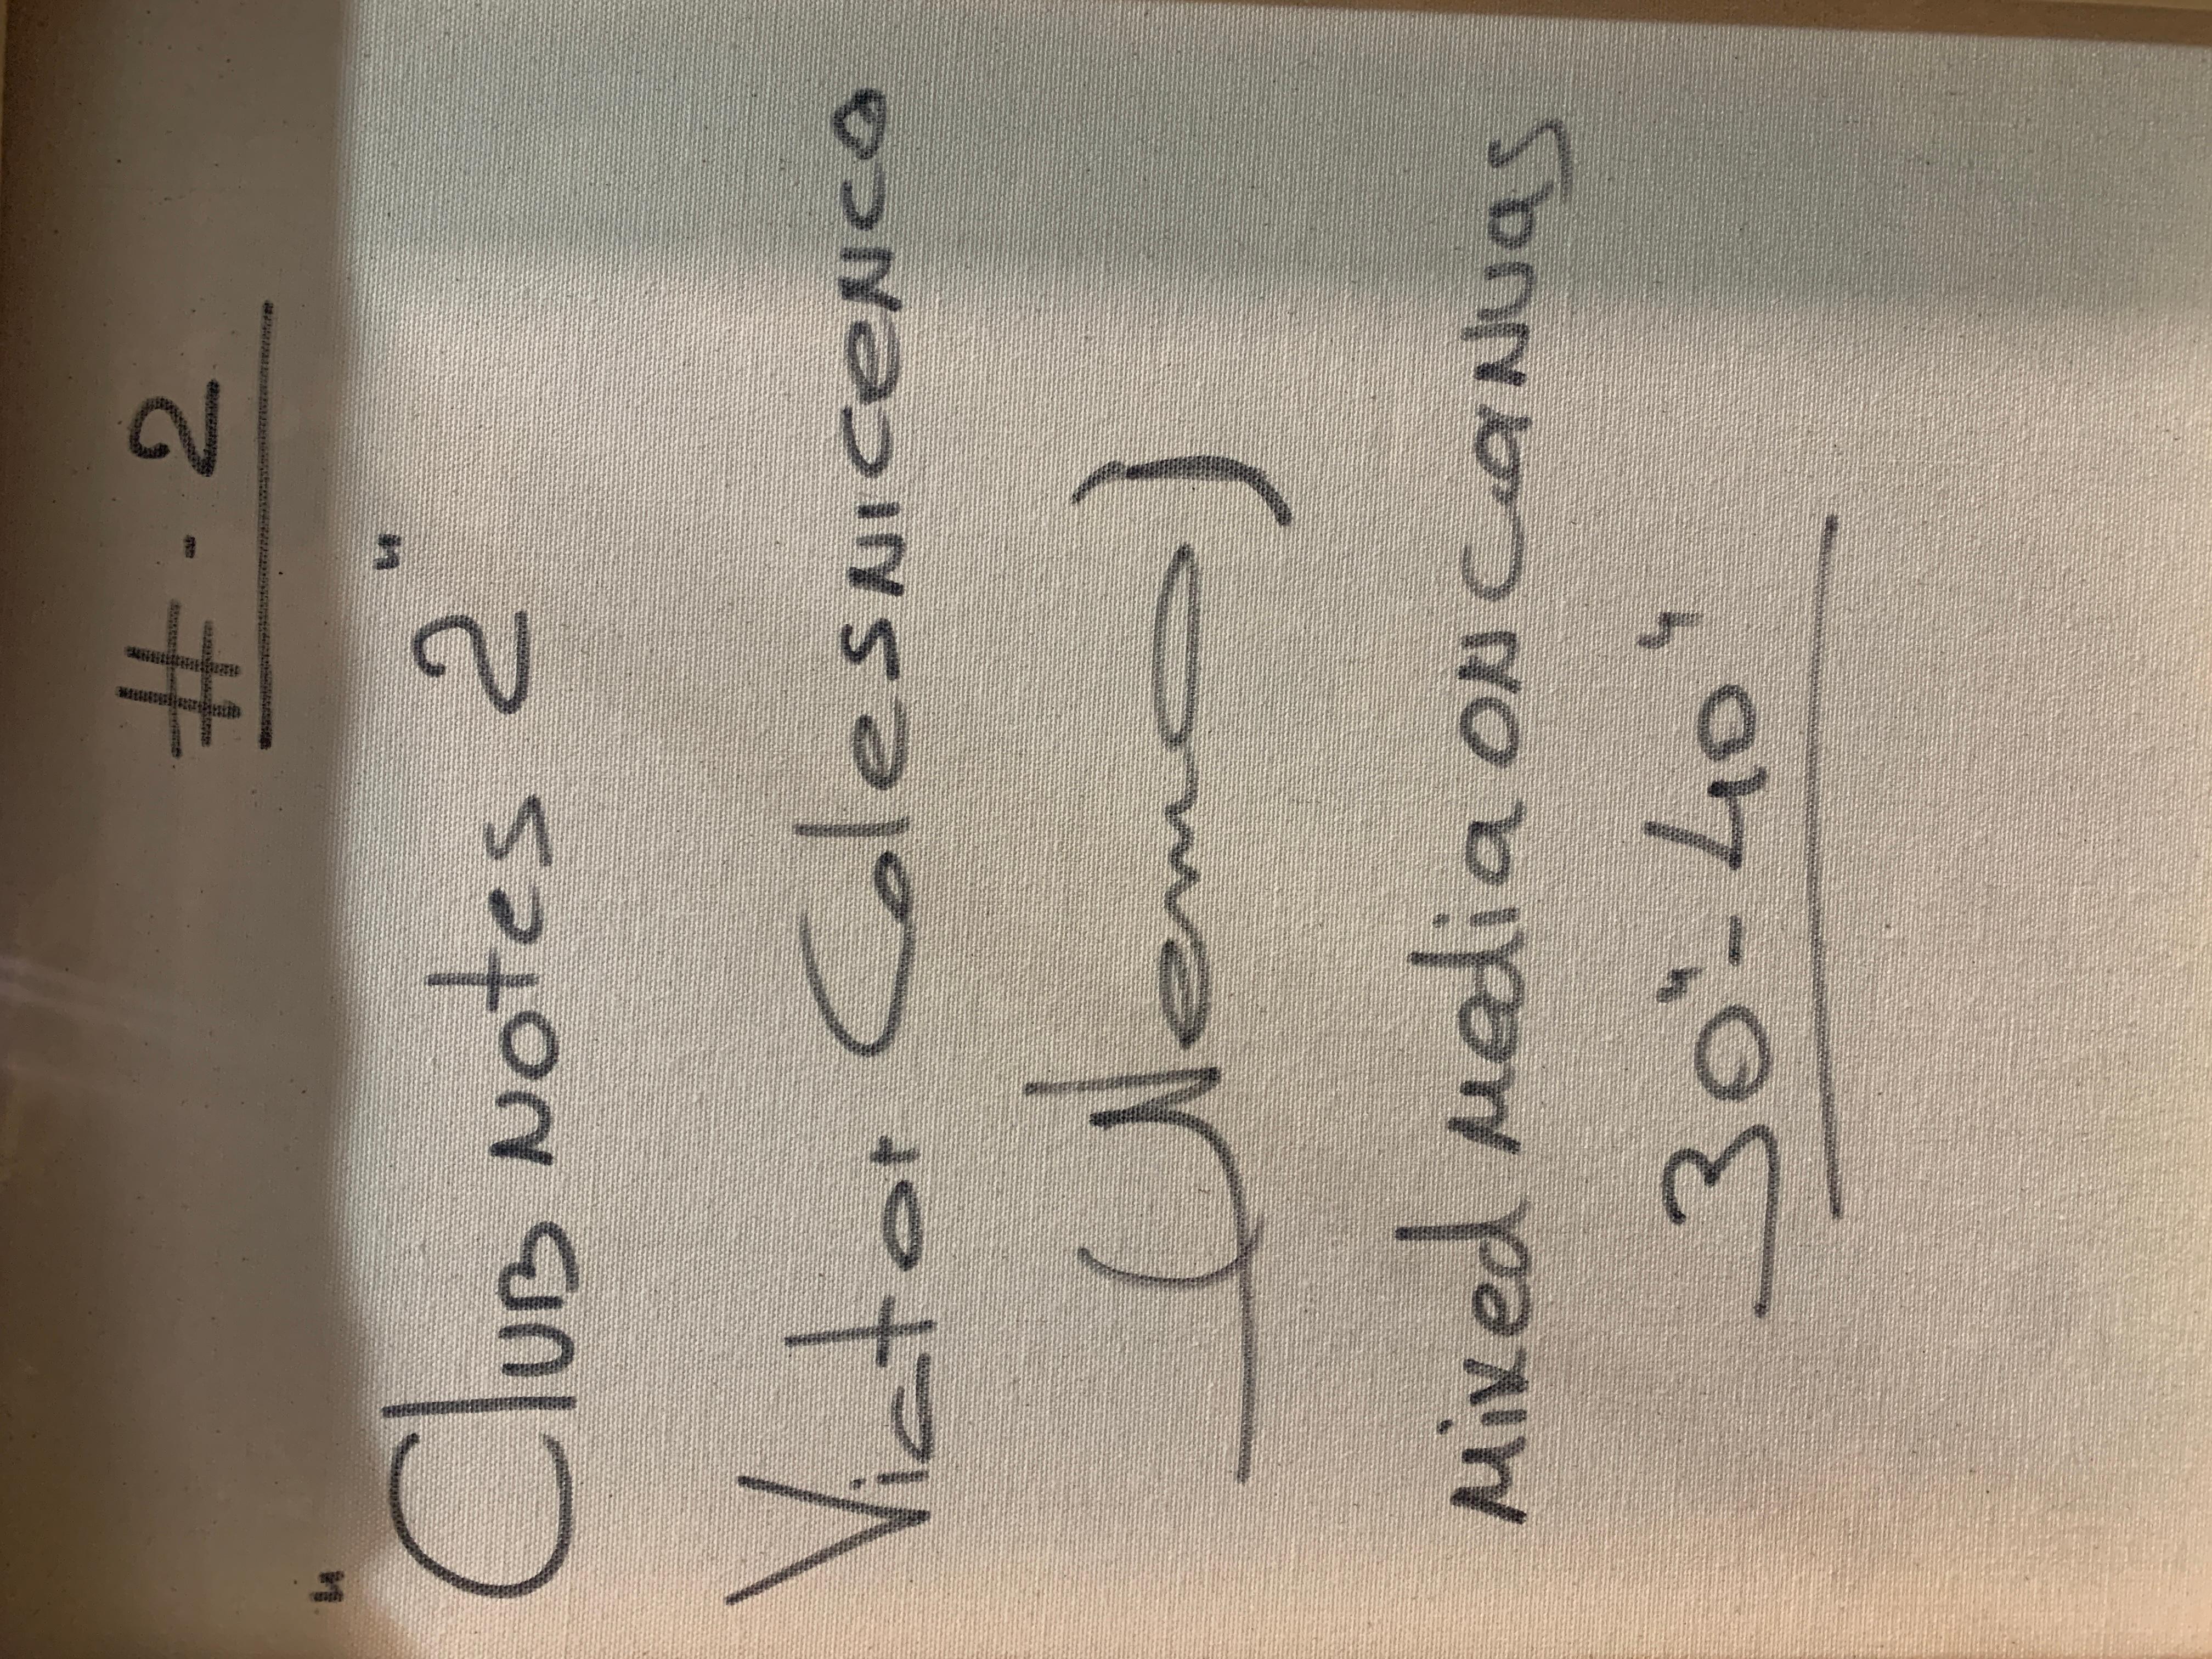 #.2
"Club Notes 2"
Victor Colesnicenco
(Nemo)
Mixed Media on Canvas
30"-40"